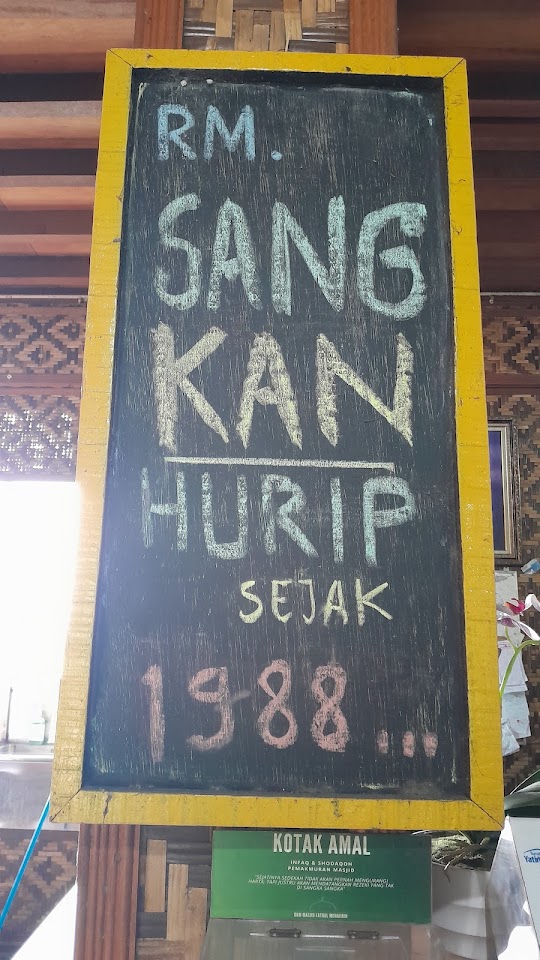 RM.
SANG
KAN
HURIP
SEJAK
1988...
KOTAK AMAL
INFAQ & SHODAQOH
PEMAKMURAN MASJID
"SEJATINYA SEDEKAH TIDAK AKAN PERNAH MENGURANGI
HARTA, TAPI JUSTRU AKAN MENDATANGKAN REZEKI YANG TAK
DI SANGKA SANGKA"